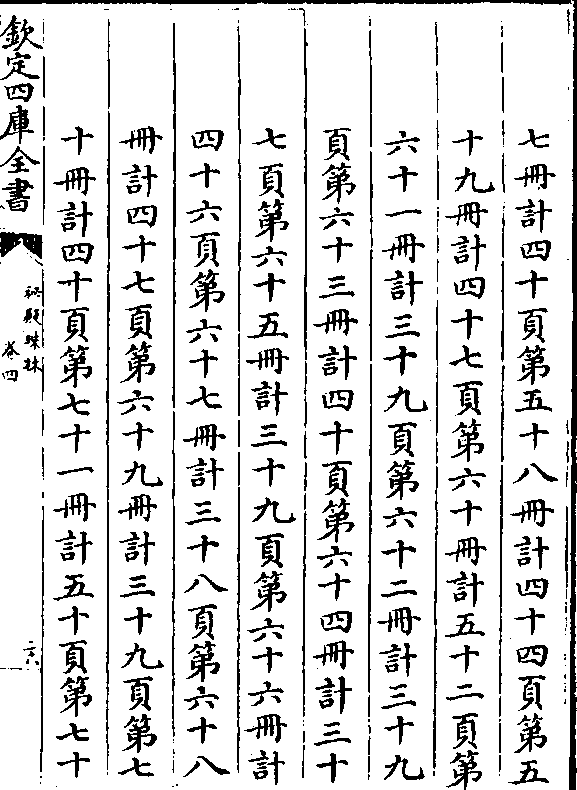 七冊計四十頁第五十八冊計四十四頁第五
十九冊計四十七頁第六十冊計五十二頁第
六十一冊計三十九頁第六十二冊計三十九
頁第六十三冊計四十頁第六十四冊計三十
七頁第六十五冊計三十九頁第六十六冊計
四十六頁第六十七冊計三十八頁第六十八
冊計四十七頁第六十九冊計三十九頁第七
十冊計四十頁第七十一冊計五十頁第七十
欽定四庫全書
秘殿珠林
卷四
二六